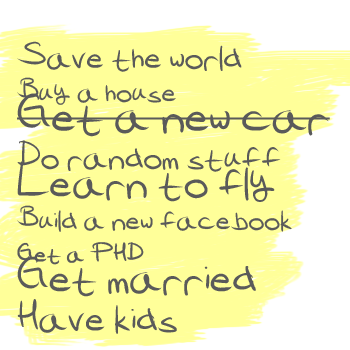 Save the world
Buy a house
Get a new car
Do random stuff
Learn to fly
Build a new facebook
Get a PHD
Get married
Have kids